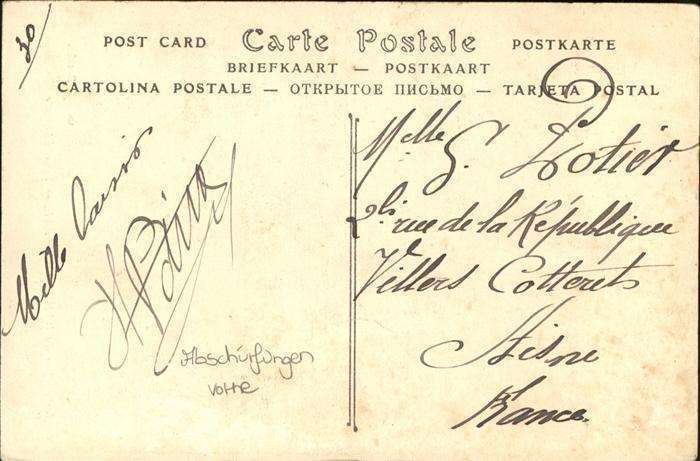 30
POST CARD Carte Postale POSTKARTE
BRIEFKAART — POSTKAART
CARTOLINA POSTALE — ОТКРЫТОЕ ПИСЬМО — TARJETA POSTAL
Mille baisers
Abschürfungen
vorne
Melle G. Lotier
rue de la République
Villers Cotterets
Aisne
France